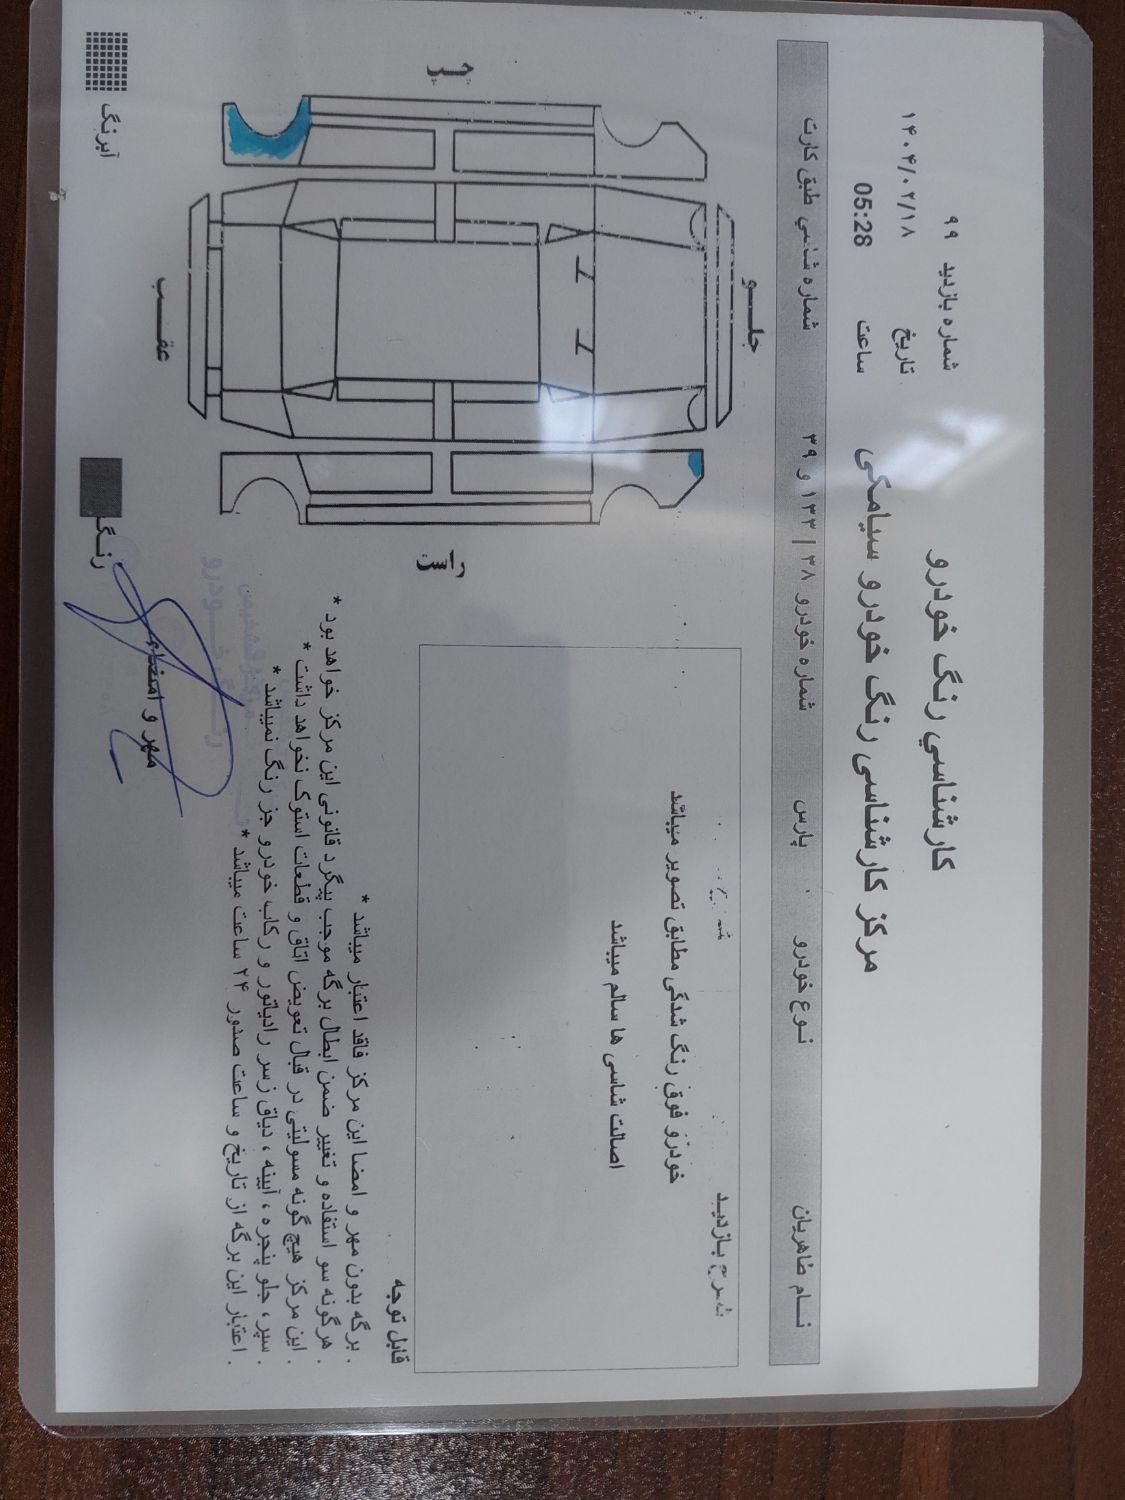 کارشناسي رنگ خودرو
مرکز کارشناسی رنگ خودرو سیامکی
شماره بازدید ۹۹
تاریخ ۱۴۰۴/۰۲/۱۸
ساعت 05:28
نـام طاهریان نـوع خودرو پارس شماره خودرو ۳۸ | ۱۳۳ و ۳۹ شماره شاسي طبق کارت
شرح بـازدیـد
خودرو فوق رنگ شدگی مطابق تصویر میباشد
اصالت شاسی ها سالم میباشد
جلـــو
چـپ
راست
عقـــب
قابل توجه
. برگه بدون مهر و امضا این مرکز فاقد اعتبار میباشد *
. هرگونه سو استفاده و تغییر ضمن ابطال برگه موجب پیگرد قانونی این مرکز خواهد بود *
. این مرکز هیچ گونه مسولیتی در قبال تعویض اتاق و قطعات استوک نخواهد داشت *
. سپر، جلو پنجره ، آیینه ، دیاق زسر رادیاتور و رکاب خودرو جز رنگ نمیباشد *
. اعتبار این برگه از تاریخ و ساعت صدور ۲۴ ساعت میباشد *
مهر و امضاء
رنـگ
آبرنگ